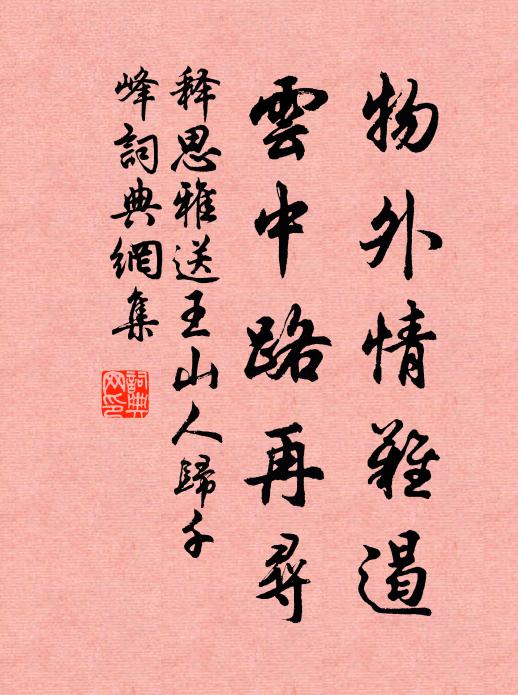 物外情難遏
雲中路再尋
释思雅送王山人歸千
峰詞典網集
詞典
网印